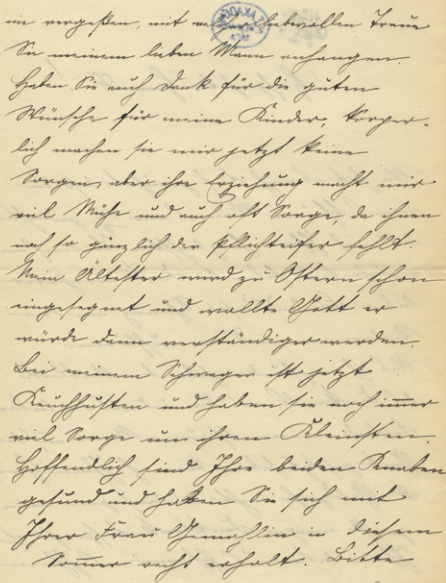 nie vergeßen, mit wollen Treue
Sie meinem lieben Mann anhangen.
Haben Sie auch Dank für die guten
Wünsche für meine Kinder, körper-
lich machen sie mir jetzt keine
Sorgen, aber ihre Erziehung macht mir
viel Mühe und auch oft Sorge, da ihnen
noch so gänzlich der Pflichteifer fehlt.
Mein Ältester wird zu Ostern schon
eingesegnet und wollte Gott er
würde dann verständiger werden.
Bei meinem Schwager ist jetzt
Keuchhusten und haben sie noch immer
viel Sorge um ihren Kleinsten.
Hoffendlich sind Ihre beiden Knaben
gesund und haben Sie sich mit
Ihrer Frau Gemahlin in diesem
Sommer recht erholt. Bitte